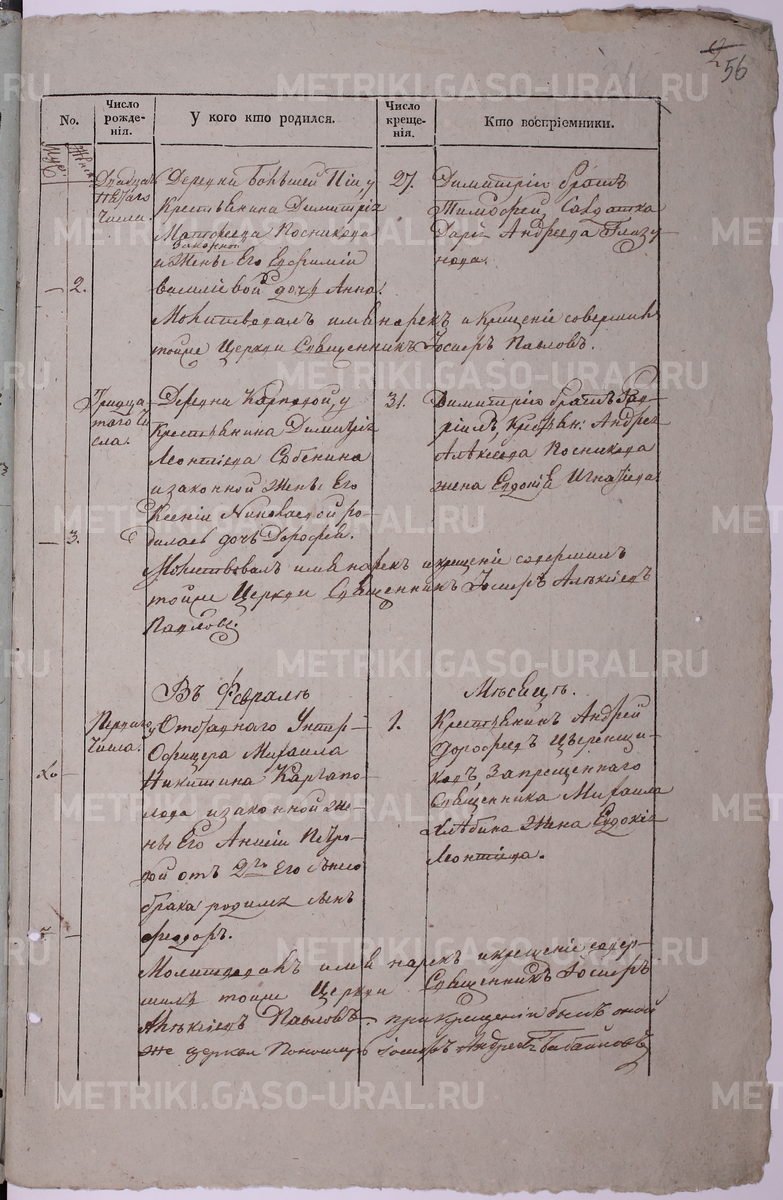 2 56
No.
Число рожде-
нія.
У кого кто родился.
Число
креще-
нія.
Кто воспріемники.
Муж. Женск.
Двадцать
пятаго
числа
Деревни Большей Піи, у
Крестьянина Димитрія
Матвеева Посникова
законной
и Жены Его Евфиміи
Василіевой дочь Анна.
27.
Димитрію братъ
Тимофей, Солдатка
Дарія Андреева Глазу-
нова.
2.
Молитвовалъ имя нарекъ и Крещеніе совершилъ
тойже Церкви Священникъ Іосифъ Павловъ.
Тридца-
таго Чи-
сла.
Деревни Карповой, у
Крестьянина Димитрія
Леонтіева Собенина
и законной Жены Его
Ксеніи
родилась дочь Дорофея.
31.
Димитрію братъ
Крестьян: Андрея
Алексіева Посникова
жена Евдокія Игнатіева
3.
Молитвовалъ имя нарекъ и крещеніе совершилъ
тойже Церкви Священникъ Іосифъ Алексіевъ
Павловъ.
Въ Февралѣ
Мѣсяцѣ.
Перваго
Числа.
у Отставнаго Унтер-
Офицера Михаила
Никитина Каргапо-
лова и законной Же-
ны Его Анисіи Петро-
вой отъ 2го Его
брака родился сынъ
Феодоръ.
1.
Крестьянинъ Андрей
Дорофеевъ
Запрещеннаго
Священника Михаила
Хлѣбина Жена Евдокія
Леонтіева.
Молитвовалъ имя нарекъ и крещеніе совер-
шилъ тойже Церкви Священникъ Іосифъ
Алексіевъ Павловъ, при Крещеніи былъ оной
же церкви Пономарь Іосифъ Андреевъ
METRIKI.GASO-URAL.RU